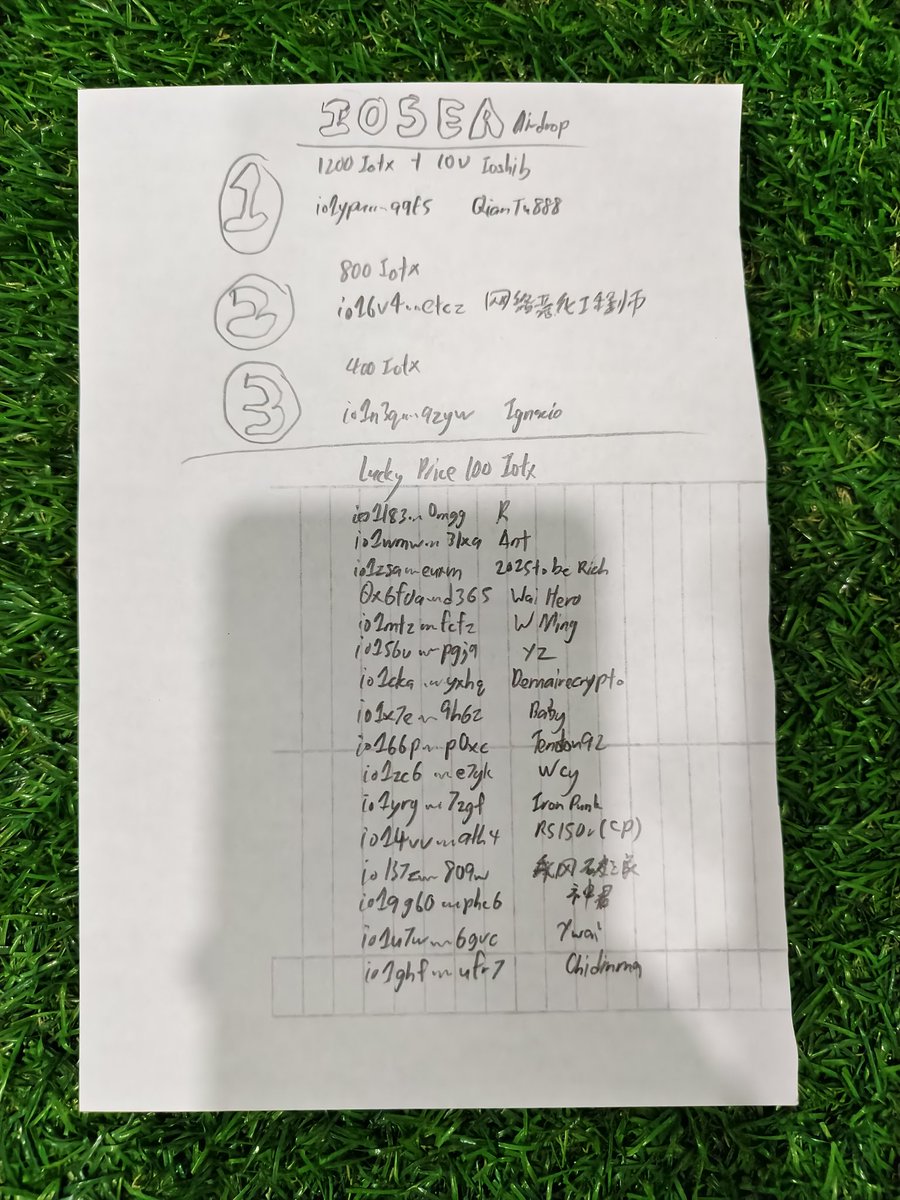 IOSEA Airdrop
1
1200 Iotx + 10U Ioshib
io1ypx...99f5 QianTu888
2
800 Iotx
io16v4...etcz 网络亮化工程师
3
400 Iotx
io1n3q...9zyw Ignacio
Lucky Price 100 Iotx
io1l83...0mgg R
io1wmw...3lxa Ant
io1zsa...eurm 2025tobeRich
0x6fda...d365 Wai Hero
io1mtz...fcfz W Ming
io156u...pgj9 YZ
io1cka...yxhq Demairecrypto
io1x7e...9h6z Baby
io166p...p0xc Tendon92
io1zc6...e7yk Wcy
io1yrg...7zgf Iron Punk
io14vv...alh4 RS150v(CP)
io137z...809w
io19g60...phc6 神君
io1u7w...6gvc Ywai
io1ghf...ufr7 Chidinma